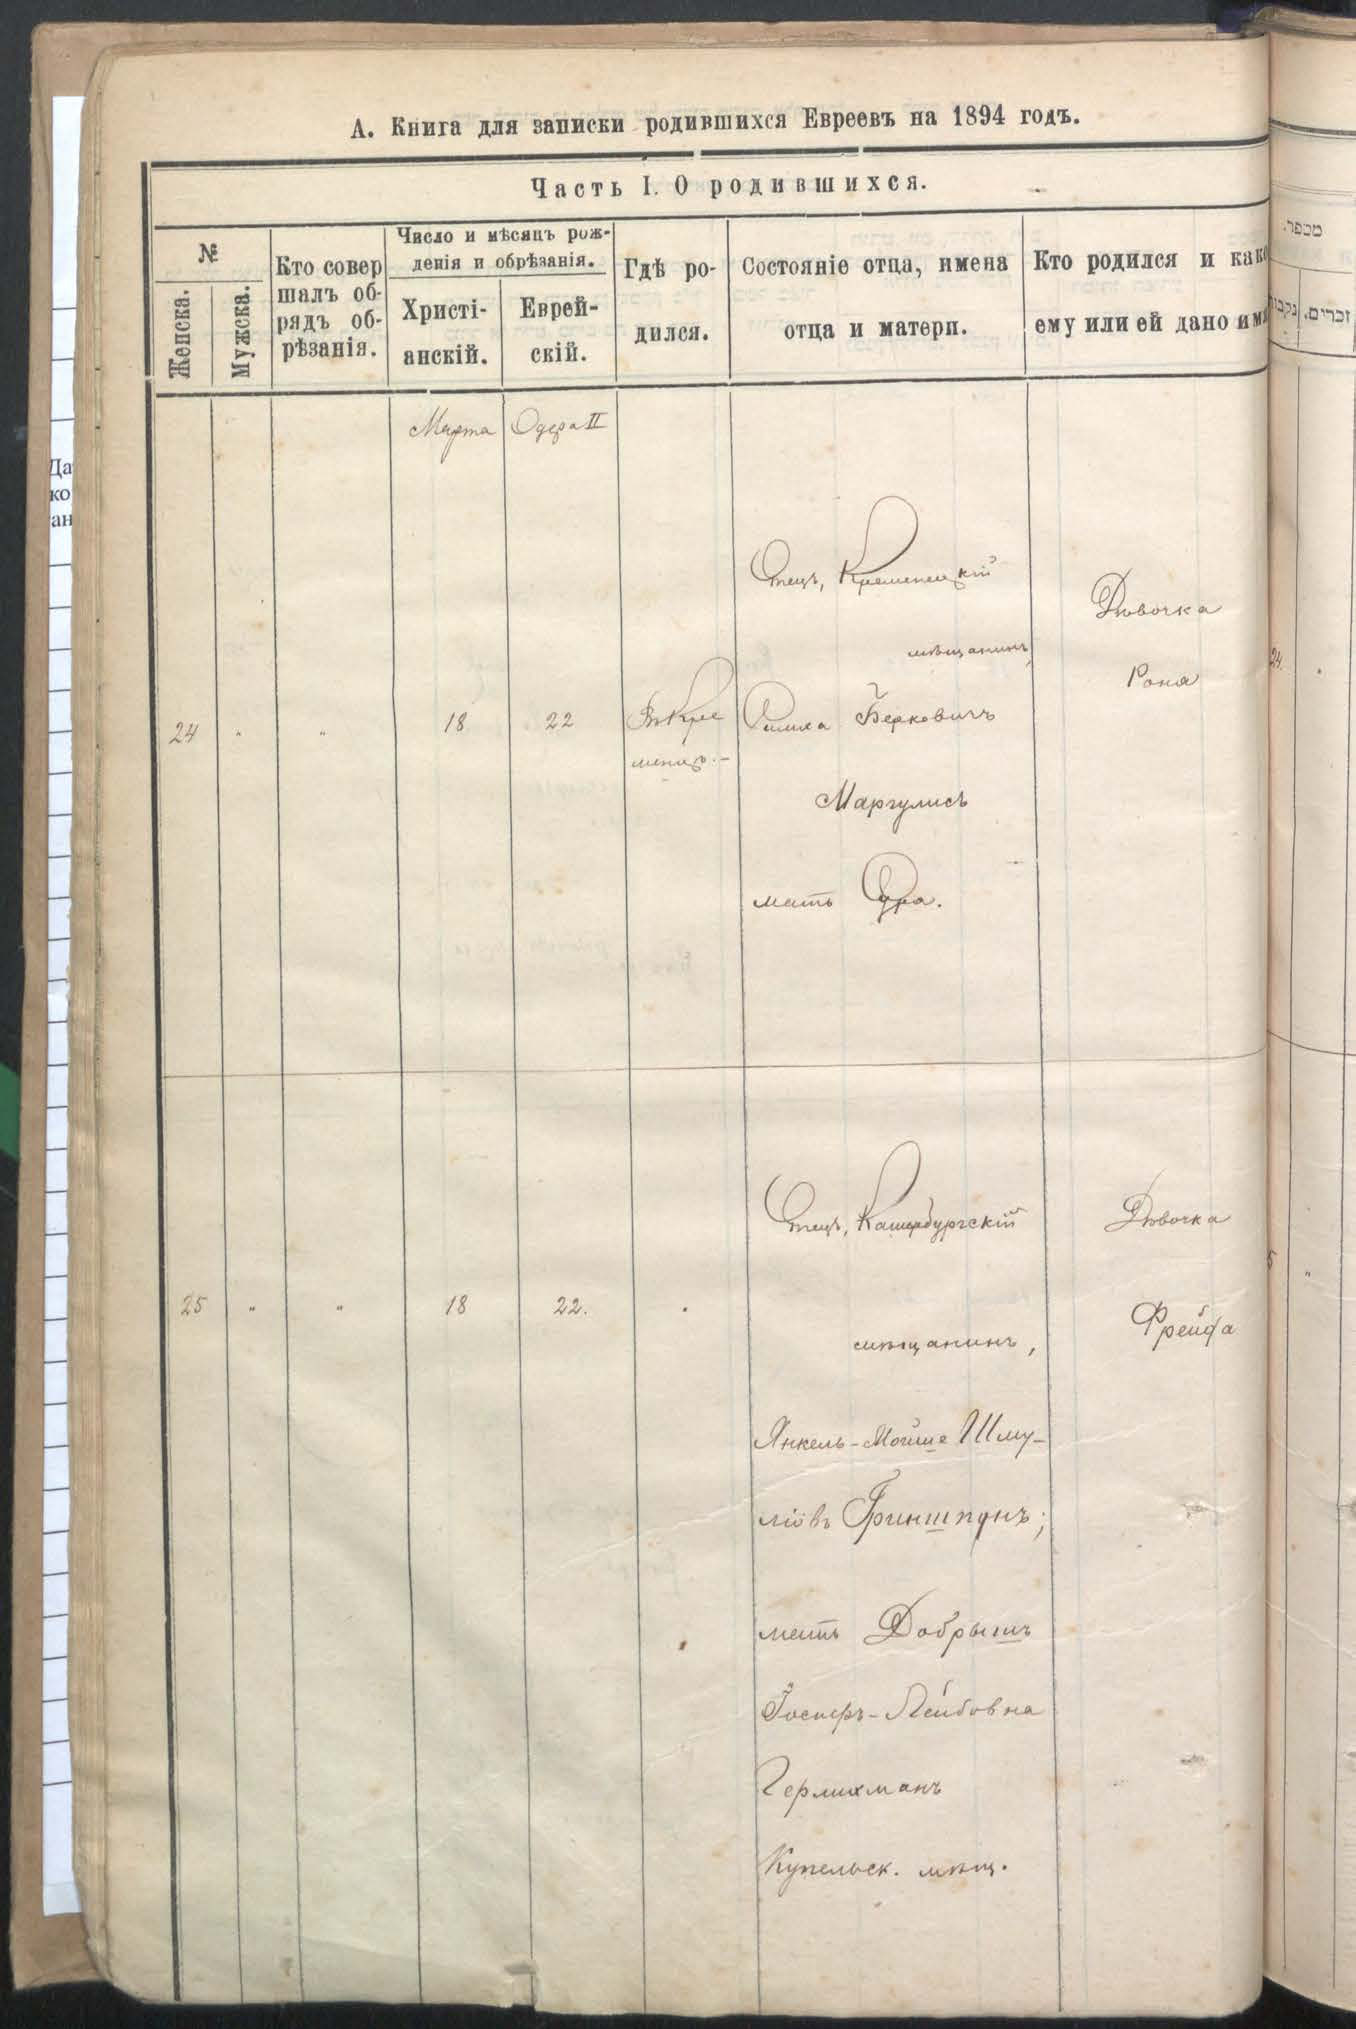 А. Книга для записки родившихся Евреевъ на 1894 годъ.
Часть I. О родившихся.
№
Женска.
Мужска.
Кто совер
шалъ об-
рядъ об-
рѣзанія.
Число и мѣсяцъ рож-
денія и обрѣзанія.
Христі-
анскій.
Еврей-
скій.
Гдѣ ро-
дился.
Состояніе отца, имена
отца и матери.
Кто родился и како
ему или ей дано имя
Марта
Одера II
24
"
"
18
22
Въ Кре
менцѣ.-
Отецъ, Кременецкій
мѣщанинъ,
Беркович
Маргулисъ
мать Сура.
Дѣвочка
Роня
25
"
"
18
22.
Отецъ, Катербургскій
мѣщанинъ,
Янкель-Мойше Шму-
ліовъ Гриншпунъ;
мать Добрышъ
Іосифъ-Лейбовна
Герлихманъ
Купельск. мѣщ.
Дѣвочка
Фрейда
מספר.
זכרים.
24.
"
Да
ко
ан